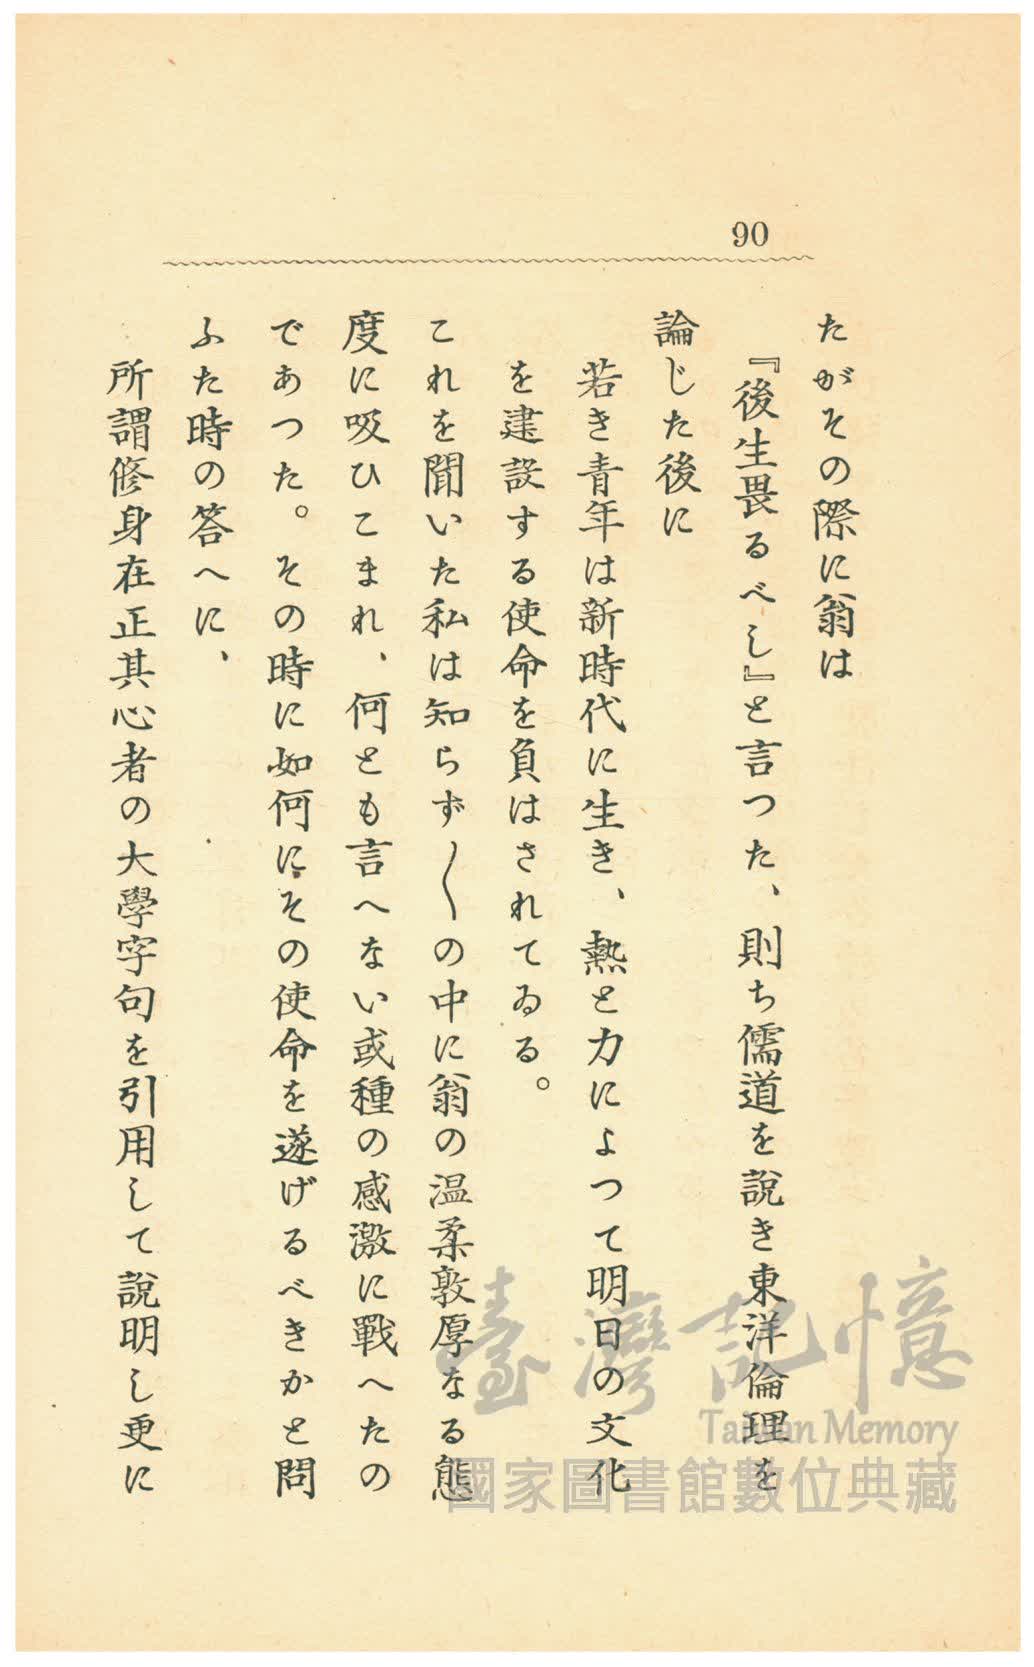 90
たがその際に翁は
『後生畏るべし』と言つた、則ち儒道を説き東洋倫理を
論じた後に
若き青年は新時代に生き、熱と力によつて明日の文化
を建設する使命を負はされてゐる。
これを聞いた私は知らず〱の中に翁の温柔敦厚なる態
度に吸ひこまれ、何とも言へない或種の感激に戰へたの
であつた。その時に如何にその使命を遂げるべきかと問
ふた時の答へに、
所謂修身在正其心者の大學字句を引用して說明し更に
臺灣記憶
Taiwan Memory
國家圖書館數位典藏